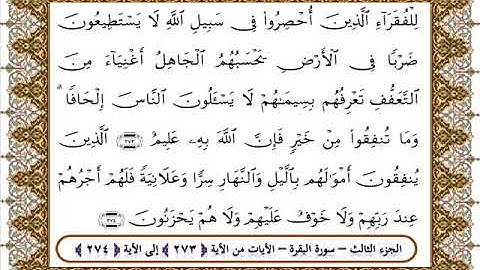 لِلْفُقَرَآءِ ٱلَّذِينَ أُحْصِرُوا۟ فِى سَبِيلِ ٱللَّهِ لَا يَسْتَطِيعُونَ
ضَرْبًا فِى ٱلْأَرْضِ يَحْسَبُهُمُ ٱلْجَاهِلُ أَغْنِيَآءَ مِنَ
ٱلتَّعَفُّفِ تَعْرِفُهُم بِسِيمَٰهُمْ لَا يَسْـَٔلُونَ ٱلنَّاسَ إِلْحَافًا ۗ
وَمَا تُنفِقُوا۟ مِنْ خَيْرٍ فَإِنَّ ٱللَّهَ بِهِۦ عَلِيمٌ ﴿٢٧٣﴾ ٱلَّذِينَ
يُنفِقُونَ أَمْوَٰلَهُم بِٱلَّيْلِ وَٱلنَّهَارِ سِرًّا وَعَلَانِيَةً فَلَهُمْ أَجْرُهُمْ
عِندَ رَبِّهِمْ وَلَا خَوْفٌ عَلَيْهِمْ وَلَا هُمْ يَحْزَنُونَ ﴿٢٧٤﴾
الجزء الثالث – سورة البقرة – الآيات من الآية ﴿ ٢٧٣ ﴾ إلى الآية ﴿ ٢٧٤ ﴾